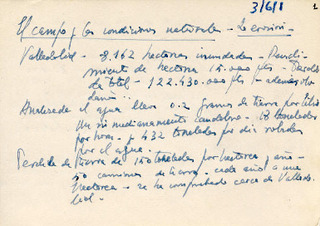 3/6/1 1
El campo y las condiciones naturales - La erosion -
Valladolid - 8.162 hectareas inundadas - Rendi-
miento de hectarea 15.000 pts - Perdida
de total - 122.430.000 pts - ademas
daño
el agua lleva 0.2 gramos de tierra por litro
Un rio medianamente caudaloso - 18 toneladas
por hora - y 432 toneladas por dia robadas
por el agua.
Perdida de tierra de 150 toneladas por hectarea y año -
50 camiones de tierra - cada año a una
hectarea - se ha comprobado cerca de Vallado-
lid -